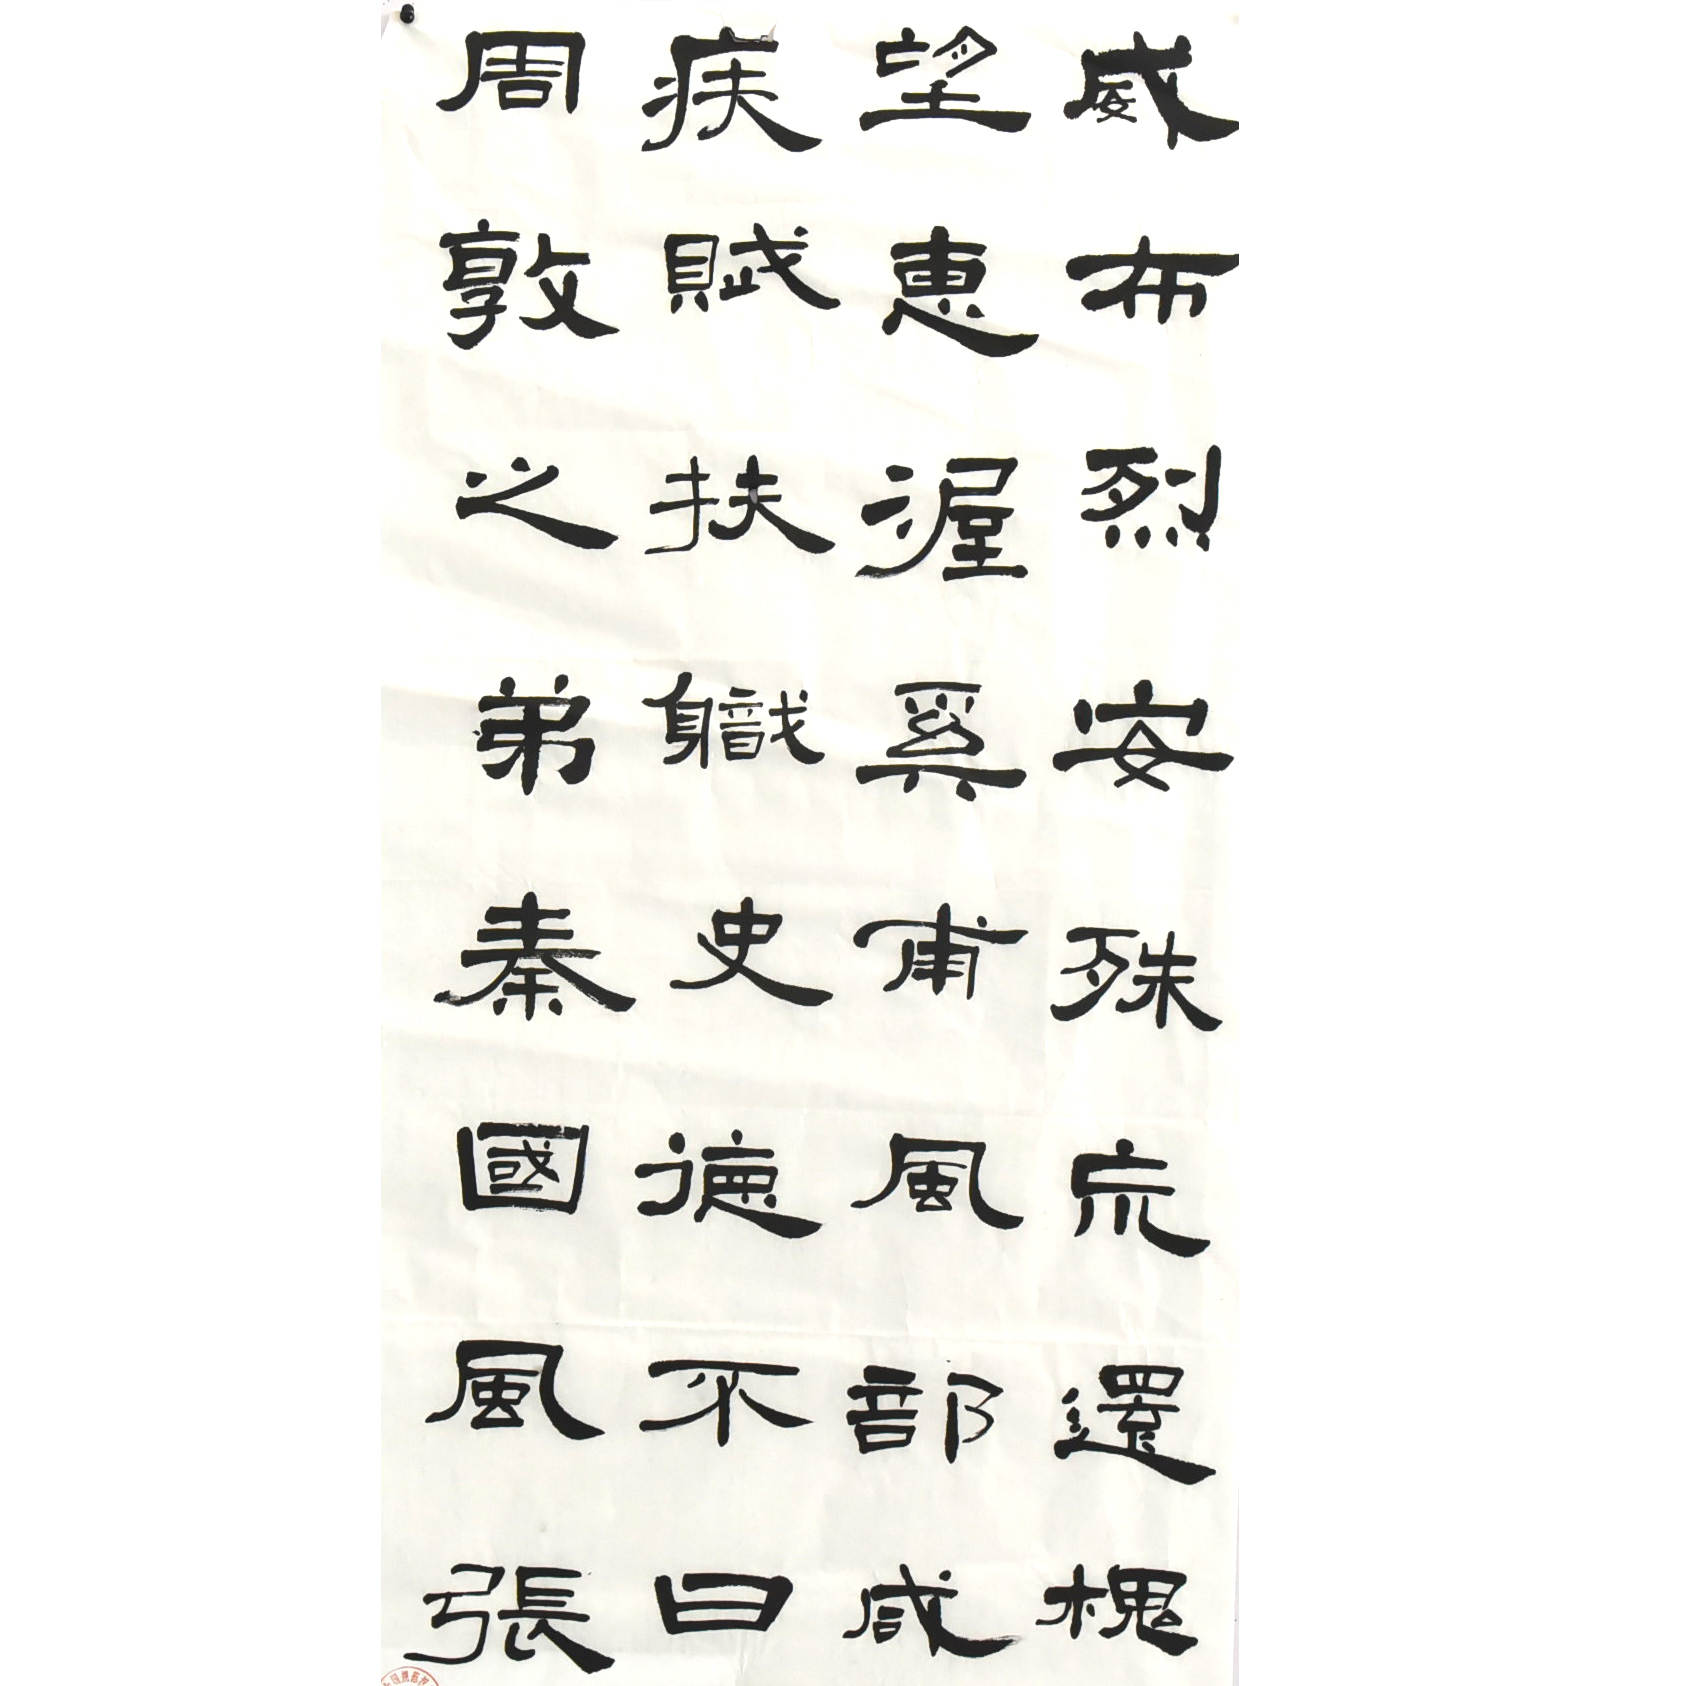 威布烈安殊荒還槐
望惠渥奚甫風部咸
疾賦扶職史德不曰
周敦之弟秦國風張